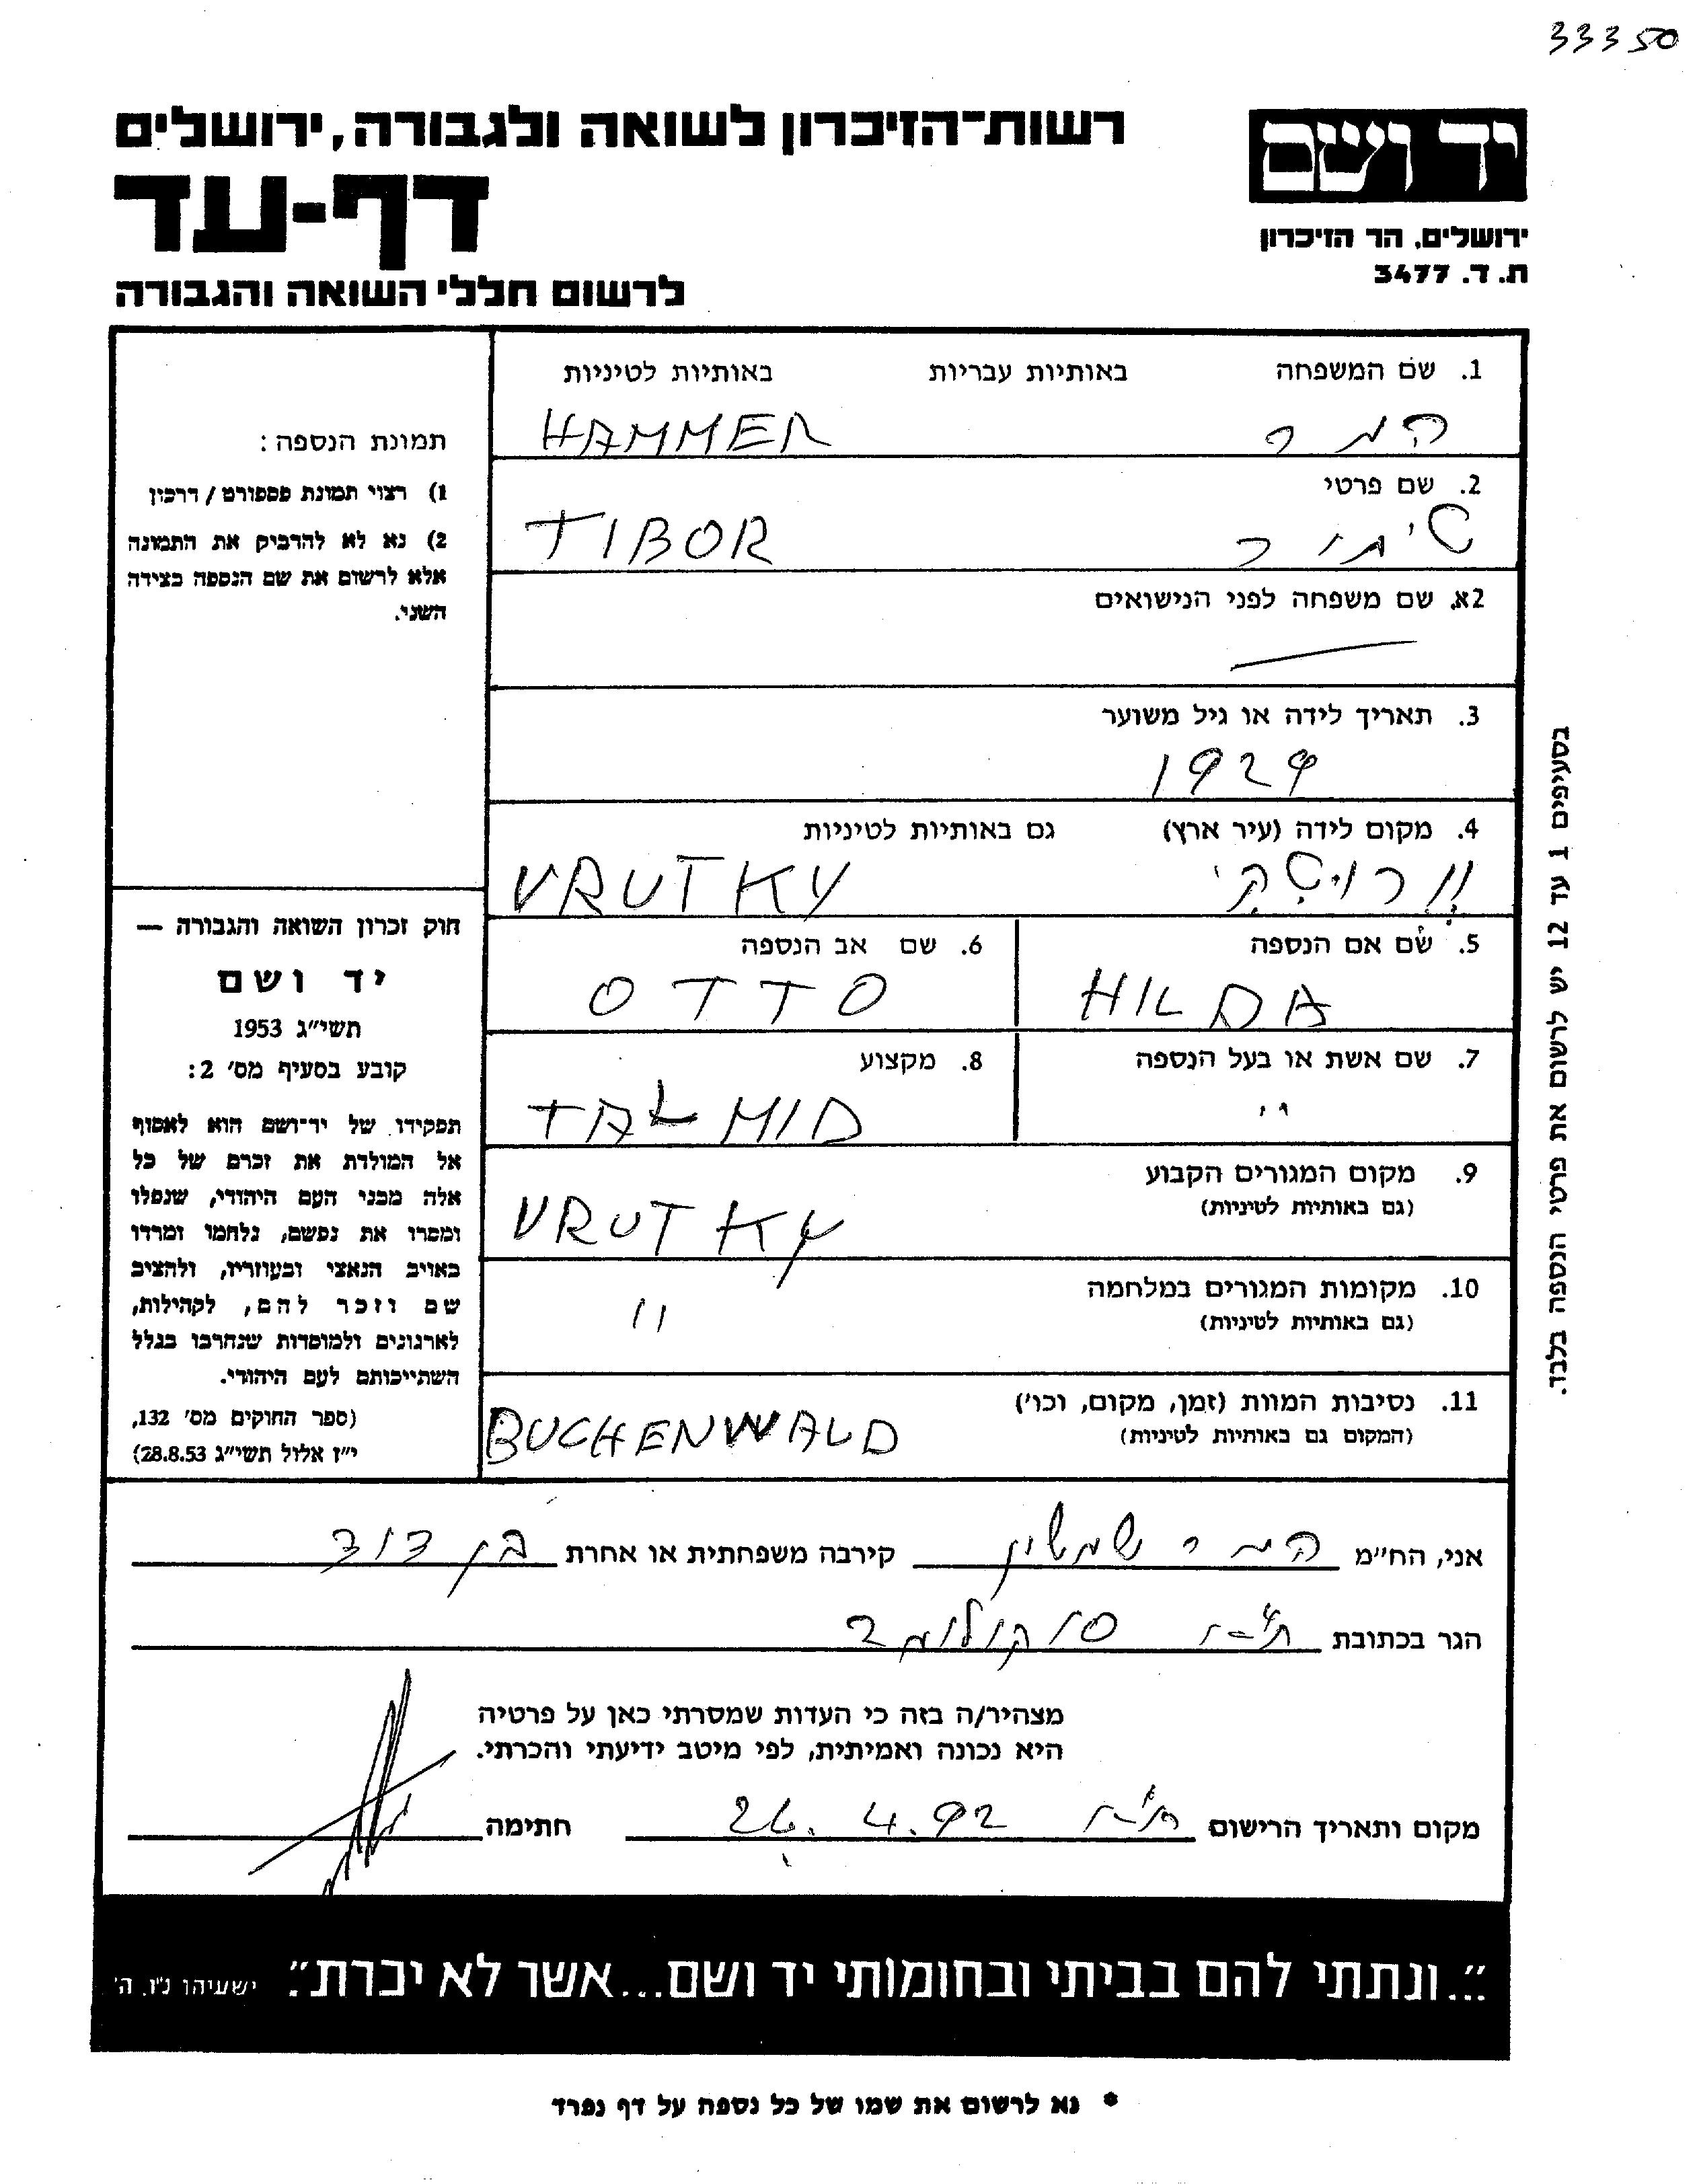 33350
רשות־הזיכרון לשואה ולגבורה, ירושלים
דף-עד
לרשום חללי השואה והגבורה
יד ושם
ירושלים, הר הזיכרון
ת. ד. 3477
1. שם המשפחה באותיות עבריות באותיות לטיניות
המר HAMMER
2. שם פרטי
טיבור TIBOR
2א. שם משפחה לפני הנישואים
3. תאריך לידה או גיל משוער
1929
4. מקום לידה (עיר ארץ) גם באותיות לטיניות
וורוטקי VRUTKY
5. שם אם הנספה 6. שם אב הנספה
HILDA OTTO
7. שם אשת או בעל הנספה 8. מקצוע
TALMID
9. מקום המגורים הקבוע
(גם באותיות לטיניות)
VRUTKY
10. מקומות המגורים במלחמה
(גם באותיות לטיניות)
"
11. נסיבות המוות (זמן, מקום, וכו')
(המקום גם באותיות לטיניות)
BUCHENWALD
תמונת הנספה:
1) רצוי תמונת פספורט / דרכון
2) נא לא להדביק את התמונה
אלא לרשום את שם הנספה בצידה
השני.
חוק זכרון השואה והגבורה —
יד ושם
תשי"ג 1953
קובע בסעיף מס' 2:
תפקידו של יד־ושם הוא לאסוף
אל המולדת את זכרם של כל
אלה מבני העם היהודי, שנפלו
ומסרו את נפשם, נלחמו ומרדו
באויב הנאצי ובעוזריו, ולהציב
שם וזכר להם, לקהילות,
לארגונים ולמוסדות שנחרבו בגלל
השתייכותם לעם היהודי.
(ספר החוקים מס' 132,
י"ז אלול תשי"ג 28.8.53)
בסעיפים 1 עד 12 יש לרשום את פרטי הנספה בלבד.
אני, הח"מ המר שמשון קירבה משפחתית או אחרת בן דוד
הגר בכתובת ת"א סוקולוב
מצהיר/ה בזה כי העדות שמסרתי כאן על פרטיה
היא נכונה ואמיתית, לפי מיטב ידיעתי והכרתי.
מקום ותאריך הרישום ת"א 26.4.92 חתימה
"...ונתתי להם בביתי ובחומותי יד ושם...אשר לא יכרת". ישעיהו נ"ו, ה'
* נא לרשום את שמו של כל נספה על דף נפרד